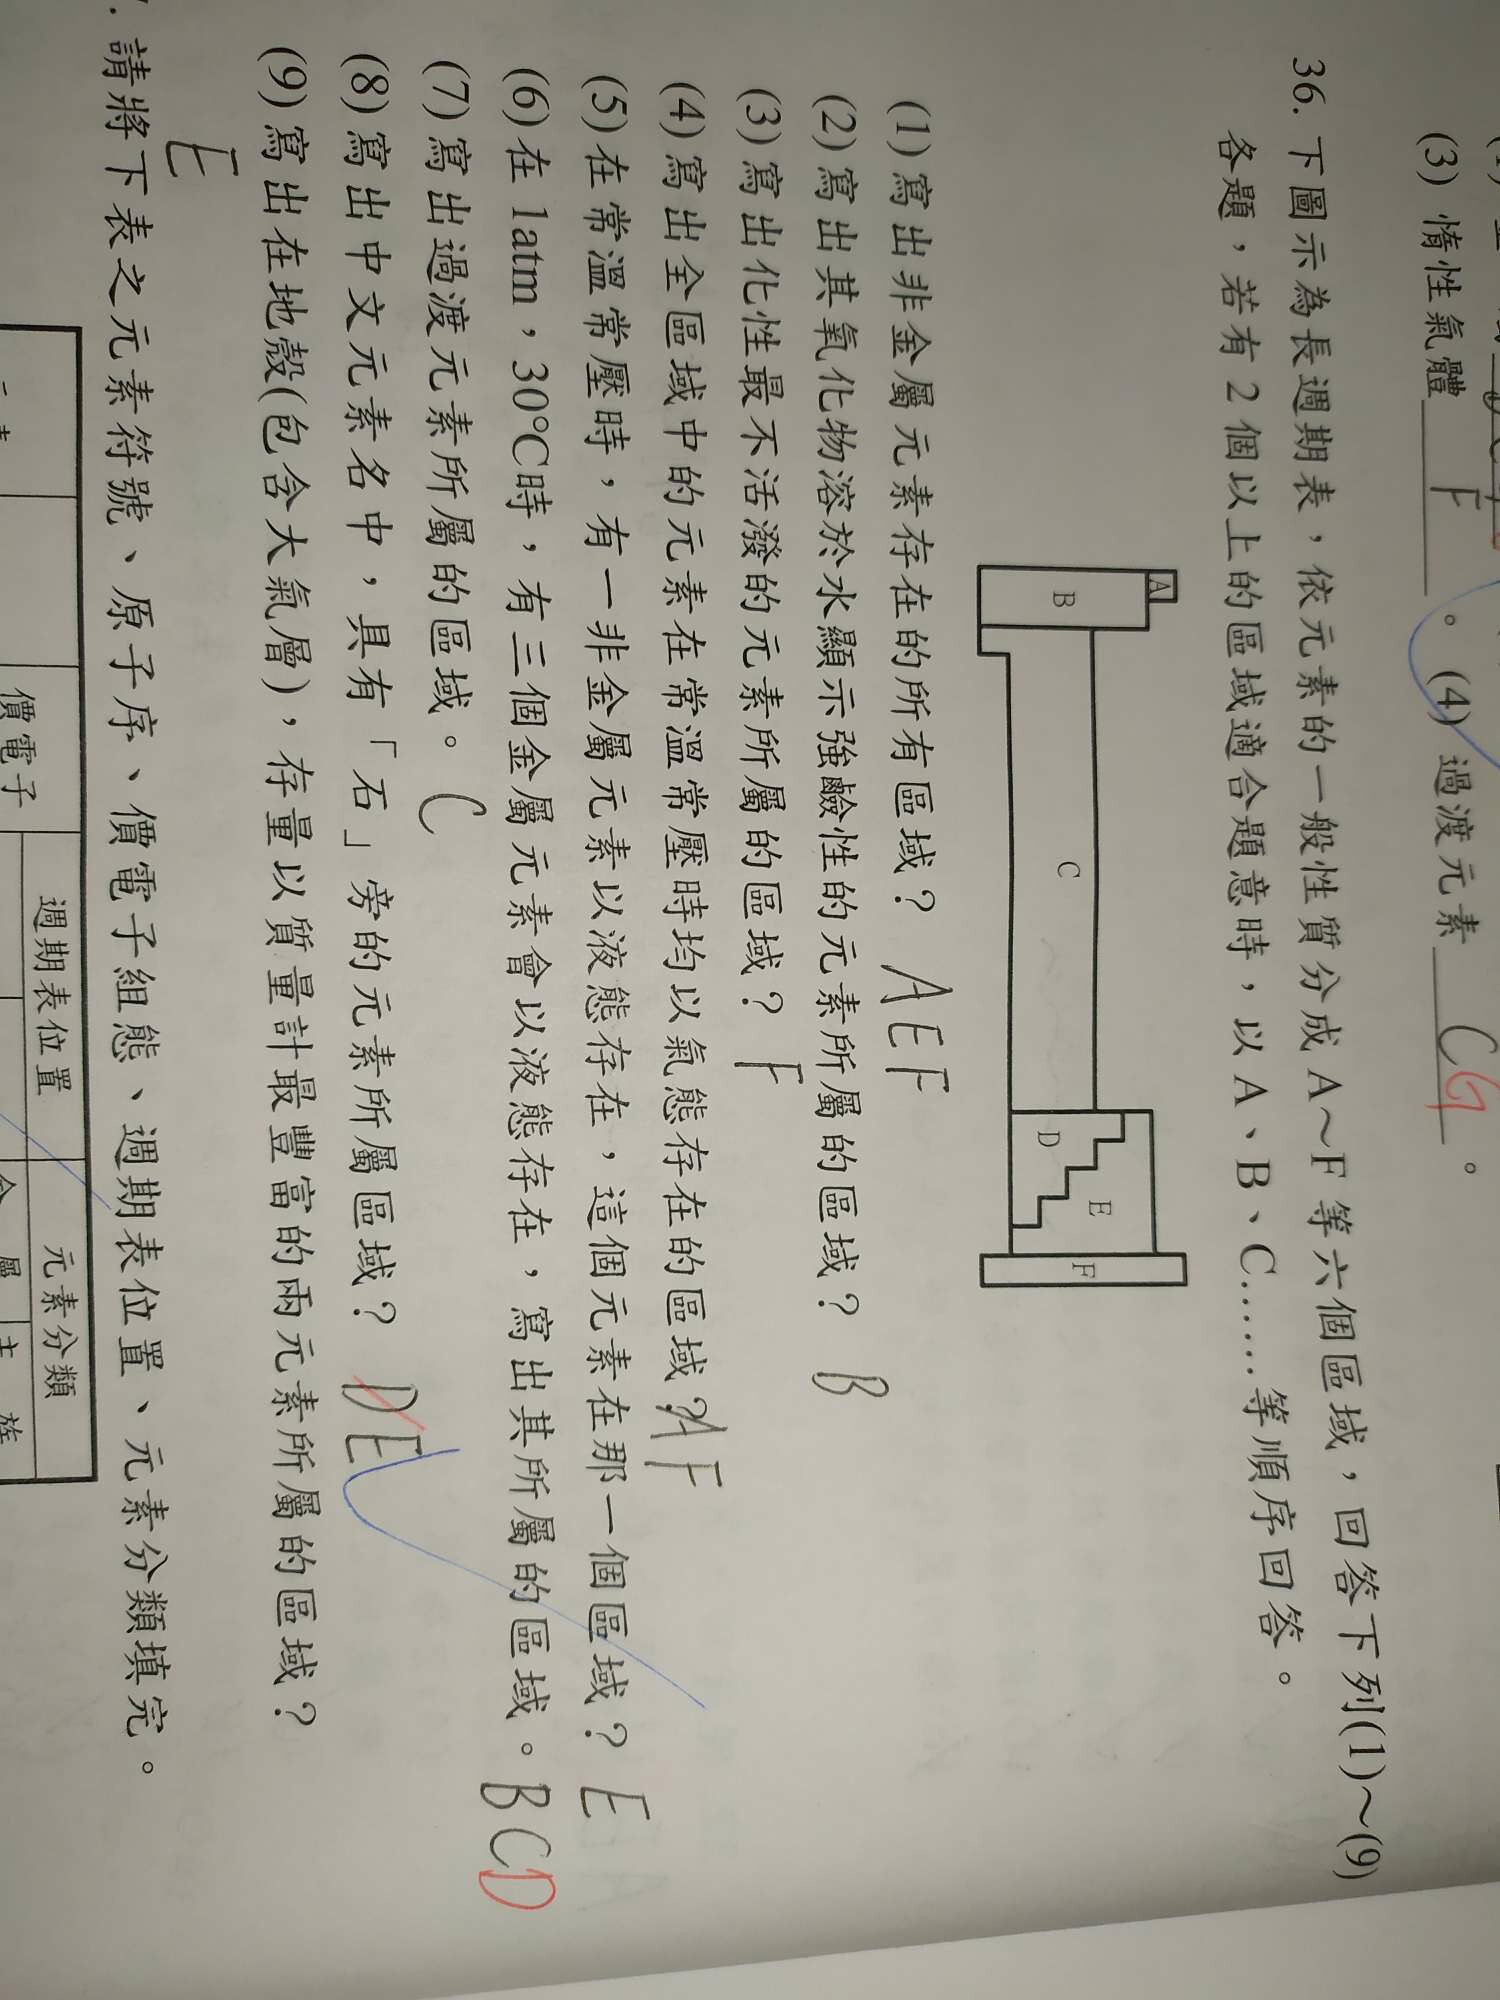 (3) 惰性氣體 F 。 (4) 過渡元素 CG 。
36. 下圖示為長週期表，依元素的一般性質分成 A～F 等六個區域，回答下列(1)～(9)
各題，若有 2 個以上的區域適合題意時，以 A、B、C……等順序回答。
A
B
C
D
E
F
(1) 寫出非金屬元素存在的所有區域？ AEF
(2) 寫出其氧化物溶於水顯示強鹼性的元素所屬的區域？ B
(3) 寫出化性最不活潑的元素所屬的區域？ F
(4) 寫出全區域中的元素在常溫常壓時均以氣態存在的區域？ AF
(5) 在常溫常壓時，有一非金屬元素以液態存在，這個元素在那一個區域？ E
(6) 在 1atm，30°C時，有三個金屬元素會以液態存在，寫出其所屬的區域。 BCD
(7) 寫出過渡元素所屬的區域。 C
(8) 寫出中文元素名中，具有「石」旁的元素所屬區域？ DE
(9) 寫出在地殼(包含大氣層)，存量以質量計最豐富的兩元素所屬的區域？
E
請將下表之元素符號、原子序、價電子組態、週期表位置、元素分類填完。
週期表位置
元素分類
價電子
金屬
主族